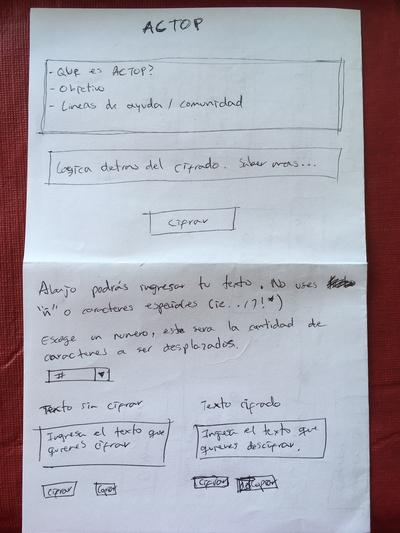 ACTOP
- QUE es ACTOP?
- Objetivo
- Lineas de ayuda / comunidad
Logica detras del cifrado. Saber mas...
Cifrar
Abajo podrás ingresar tu texto. No uses
"ñ" o caracteres especiales (ie. . , / ? ! *)
Escoge un numero, este sera la cantidad de
caracteres a ser desplazados.
#
Texto sin cifrar
Texto cifrado
Ingresa el texto que
quieres cifrar
Ingresa el texto que
quieres descifrar.
Cifrar
Copiar
Cifrar
Copiar